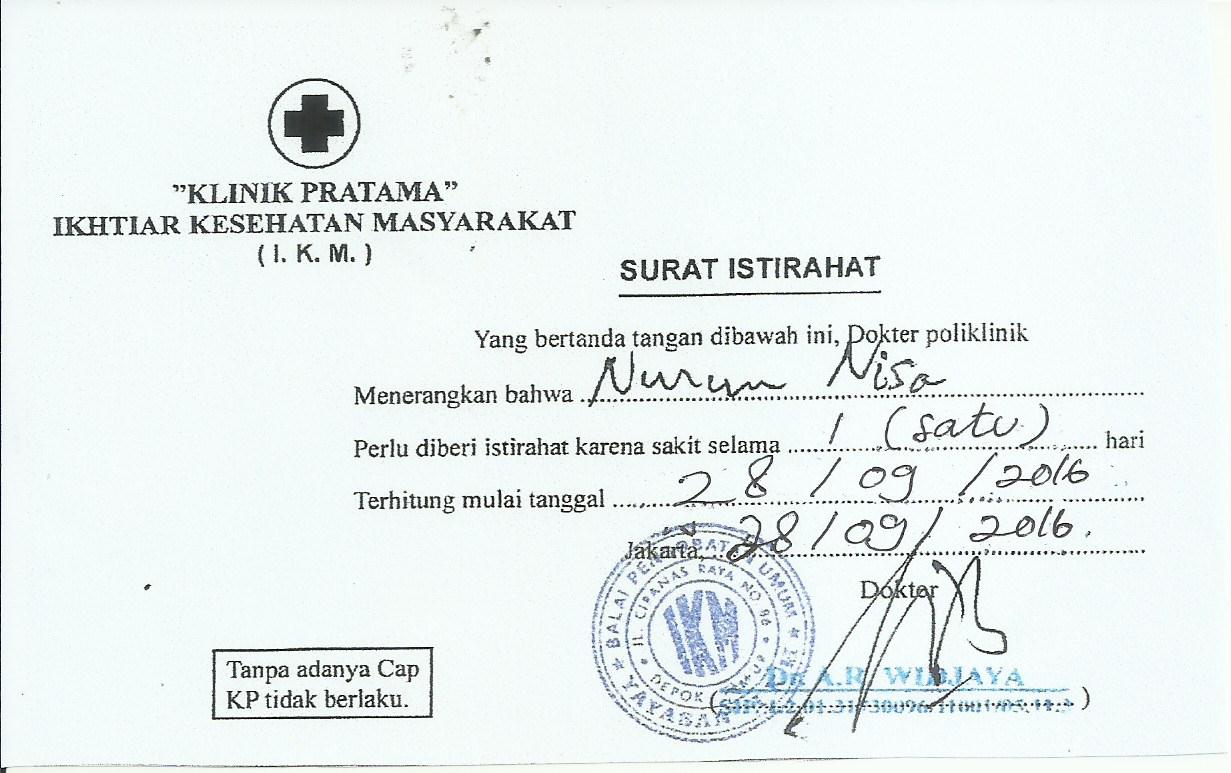 "KLINIK PRATAMA"
IKHTIAR KESEHATAN MASYARAKAT
( I. K. M. )
SURAT ISTIRAHAT
Yang bertanda tangan dibawah ini, Dokter poliklinik
Menerangkan bahwa Nurun Nisa
Perlu diberi istirahat karena sakit selama 1 (satu) hari
Terhitung mulai tanggal 28 / 09 / 2016
Jakarta, 28 / 09 / 2016.
Dokter
BALAI PENGOBATAN UMUM
JL. CIPANAS RAYA NO 96
IKM
DEPOK TIMUR
YAYASAN
Dr. A.R. WIDJAYA
( )
Tanpa adanya Cap
KP tidak berlaku.